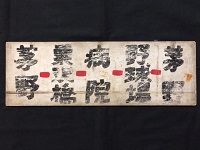 茅野
橋
病院
野球場
茅野